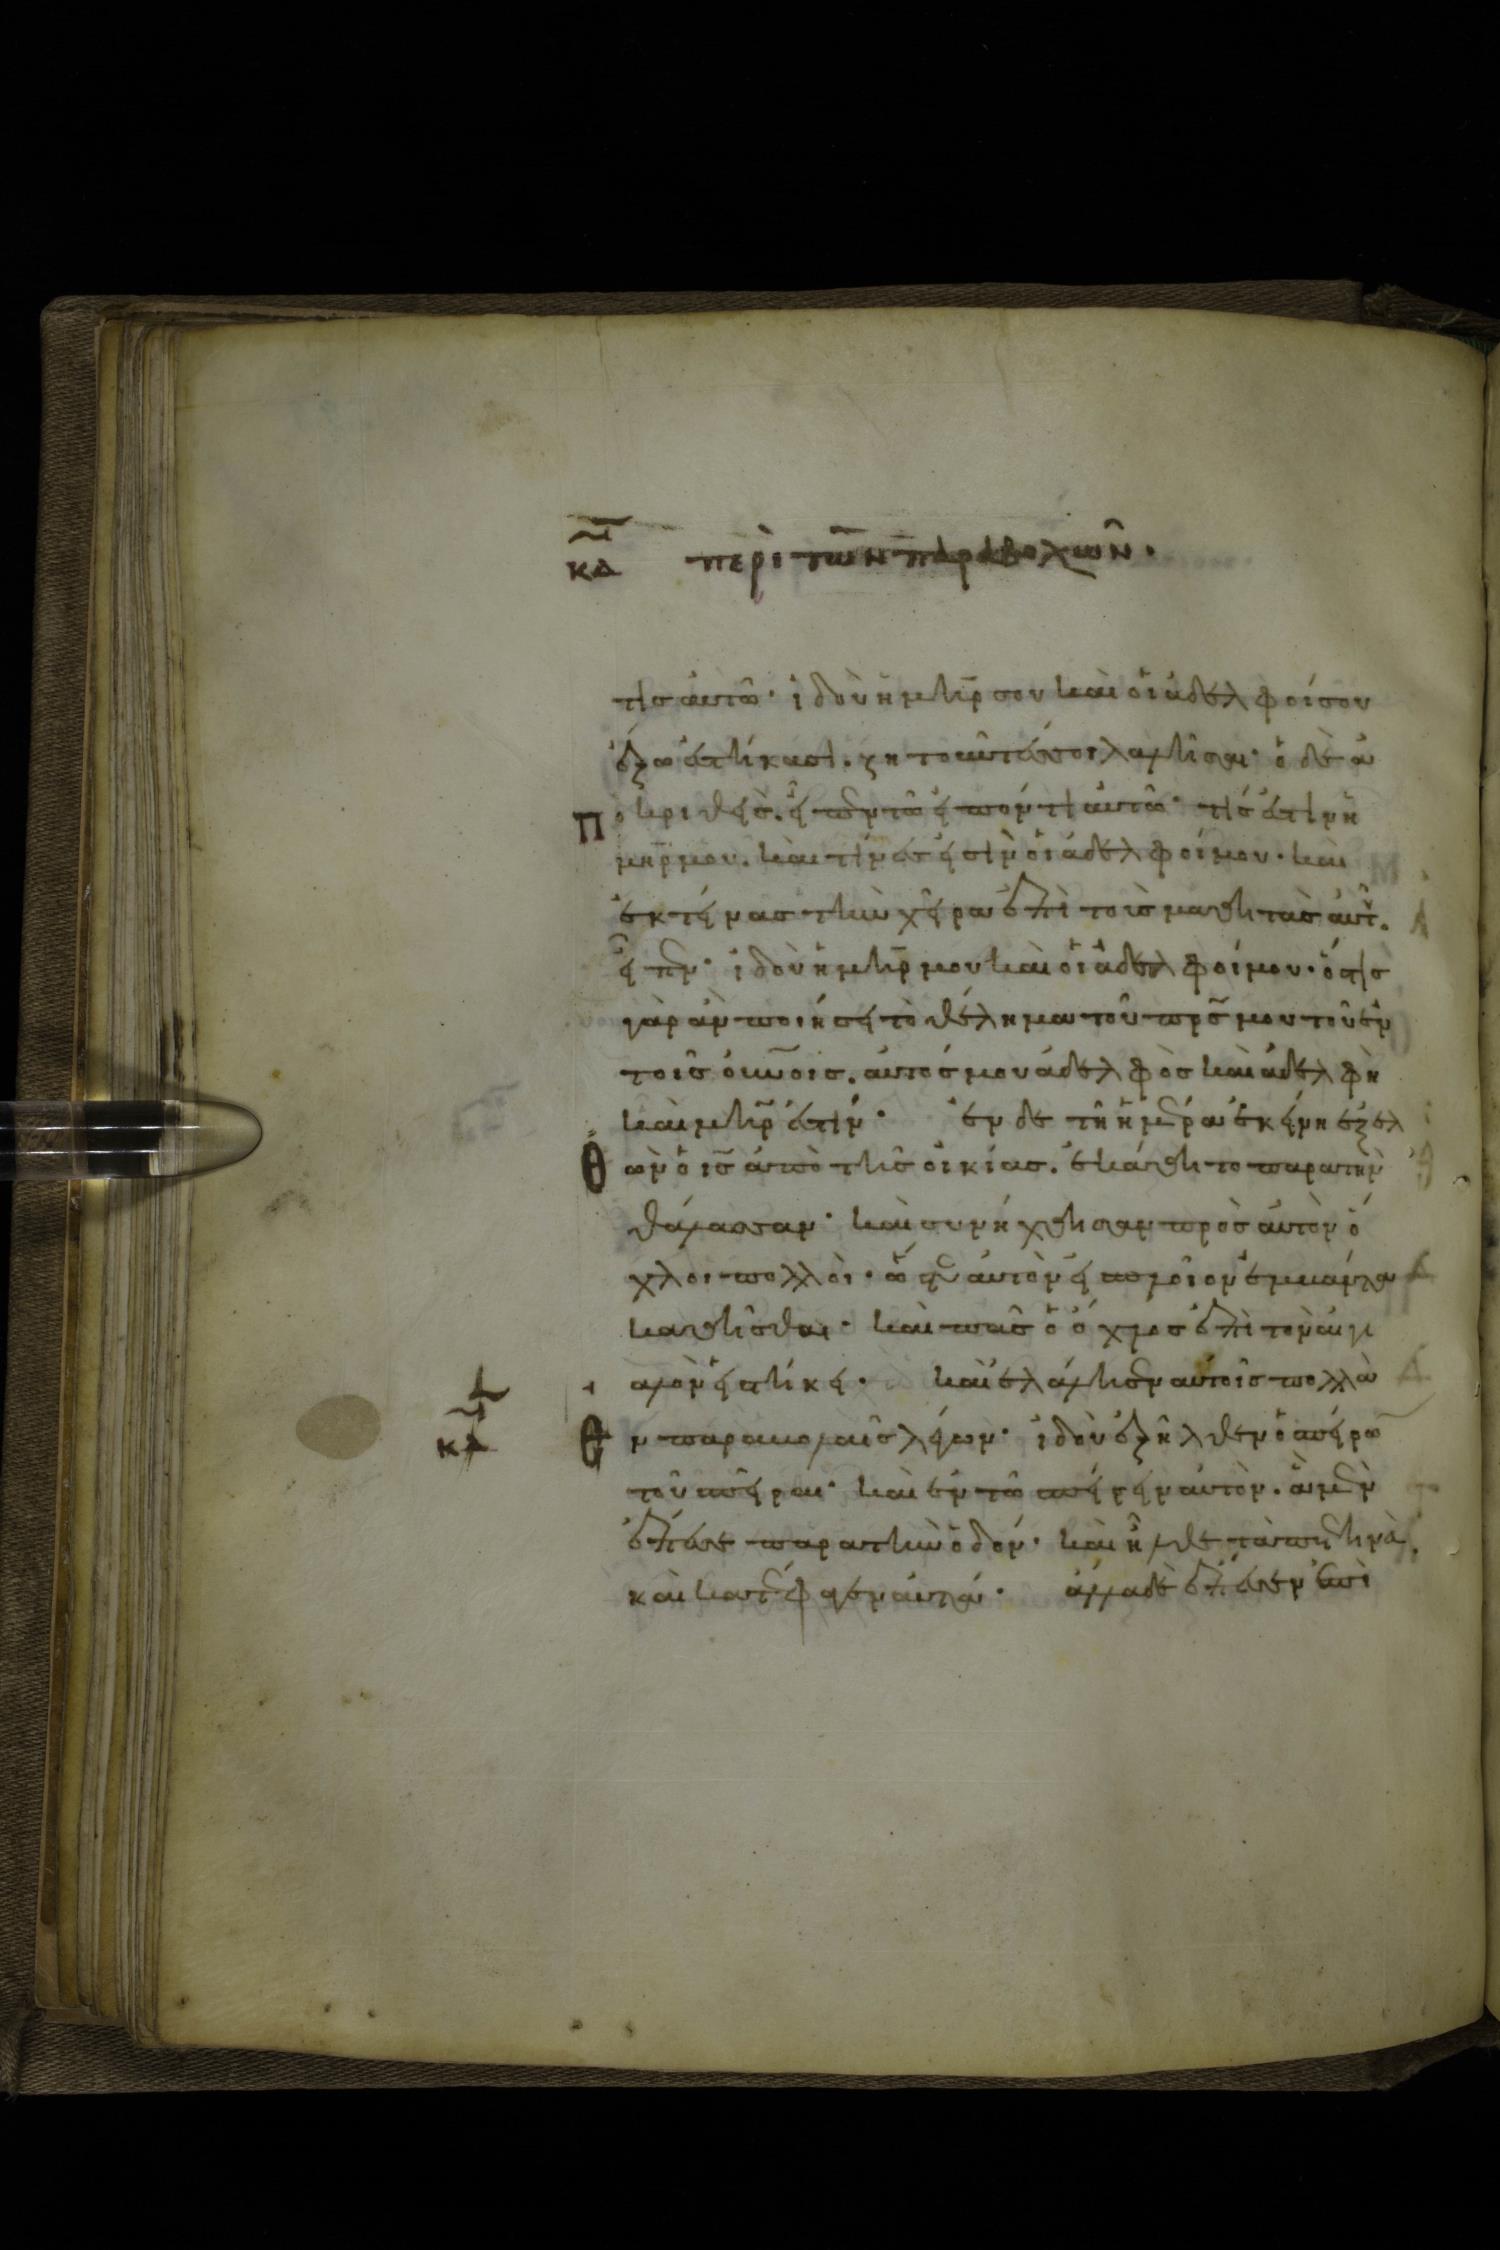 κδ περὶ τῶν παραβολῶν.
τις αὐτῶ· ἰδοὺ ἡ μηρ σου καὶ οἱ ἀδελφοί σου
ἔξω ἑστήκασι. ζητοῦντές σοι λαλῆσαι· ὁ δὲ ἀ
ποκριθεὶς. εἶπεν τῶ εἰπόντι αὐτῶ· τίς ἐστὶν ἡ
μηρ μου. καὶ τίνες εἰσὶν οἱ ἀδελφοί μου· καὶ
ἐκτείνας τὴν χεῖρα ἐπὶ τοὺς μαθητὰς αὐτ.
εἶπεν· ἰδοὺ ἡ μηρ μου καὶ οἱ ἀδελφοί μου· ὅστις
γὰρ ἂν ποιήσει τὸ θέλημα τοῦ πρς μου τοῦ ἐν
τοῖς οὐνοις. αὐτός μου ἀδελφὸς καὶ ἀδελφὴ
καὶ μηρ ἐστίν· ἐν δε τῆ ἡμέρα ἐκείνη ἐξελ
θὼν ὁ ις ἀπὸ τῆς οἰκίας. ἐκάθητο παρα τὴν
θάλασσαν· καὶ συνήχθησαν πρὸς αὐτὸν ὄ
χλοι πολλοὶ· ὥστε αὐτὸν εἰς πλοῖον ἐμβάντα
καθῆσθαι· καὶ πᾶς ὁ ὄχλος ἐπὶ τὸν αἰγι
αλὸν εἱστήκει· καὶ ἐλάλησεν αὐτοῖς πολλὰ
κδ ἐν παραβολαῖς λέγων· ἰδοὺ ἐξῆλθεν ὁ σπείρω
τοῦ σπεῖραι· καὶ ἐν τῶ σπείρειν αὐτὸν. ἃ μὲν
ἔπεσε παρα τὴν ὁδόν· καὶ ἦλθε τὰ πετηνὰ.
καὶ κατέφαγεν αὐτά· ἄλλα δὲ ἔπεσεν ἐπὶ